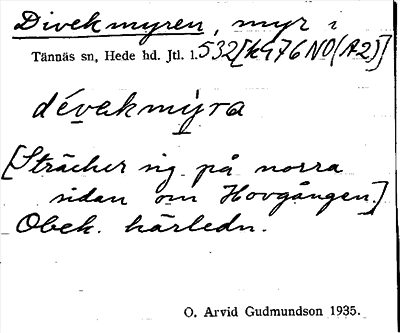 Divekmyren, myr i
Tännäs sn, Hede hd. Jtl. l. 532 [kG76NO(A2)]
dévekmýra
[Sträcker sig på norra
sidan om Hovgången.]
Obek. härledn.
O. Arvid Gudmundson 1935.